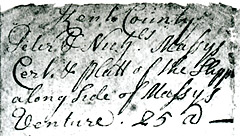 Kent County
Peter & Nichs. Massy's
Cert. & Platt of the
along Side of Massy's
Venture. 25 a